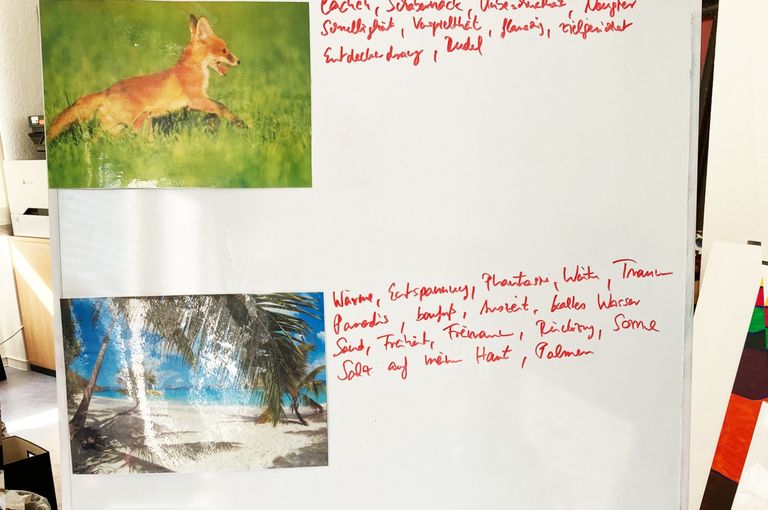 Lachen, Schabernack, Unbeschwertheit, Neugier
Schnelligkeit, Verspieltheit, flauschig, zielgerichtet
Entdeckerdrang, Rudel
Wärme, Entspannung, Phantasie, Weite, Traum
Paradis, barfuß, Auszeit, kaltes Wasser
Sand, Freiheit, Freiraum, Richtung, Sonne
Salz auf meine Haut, Palmen